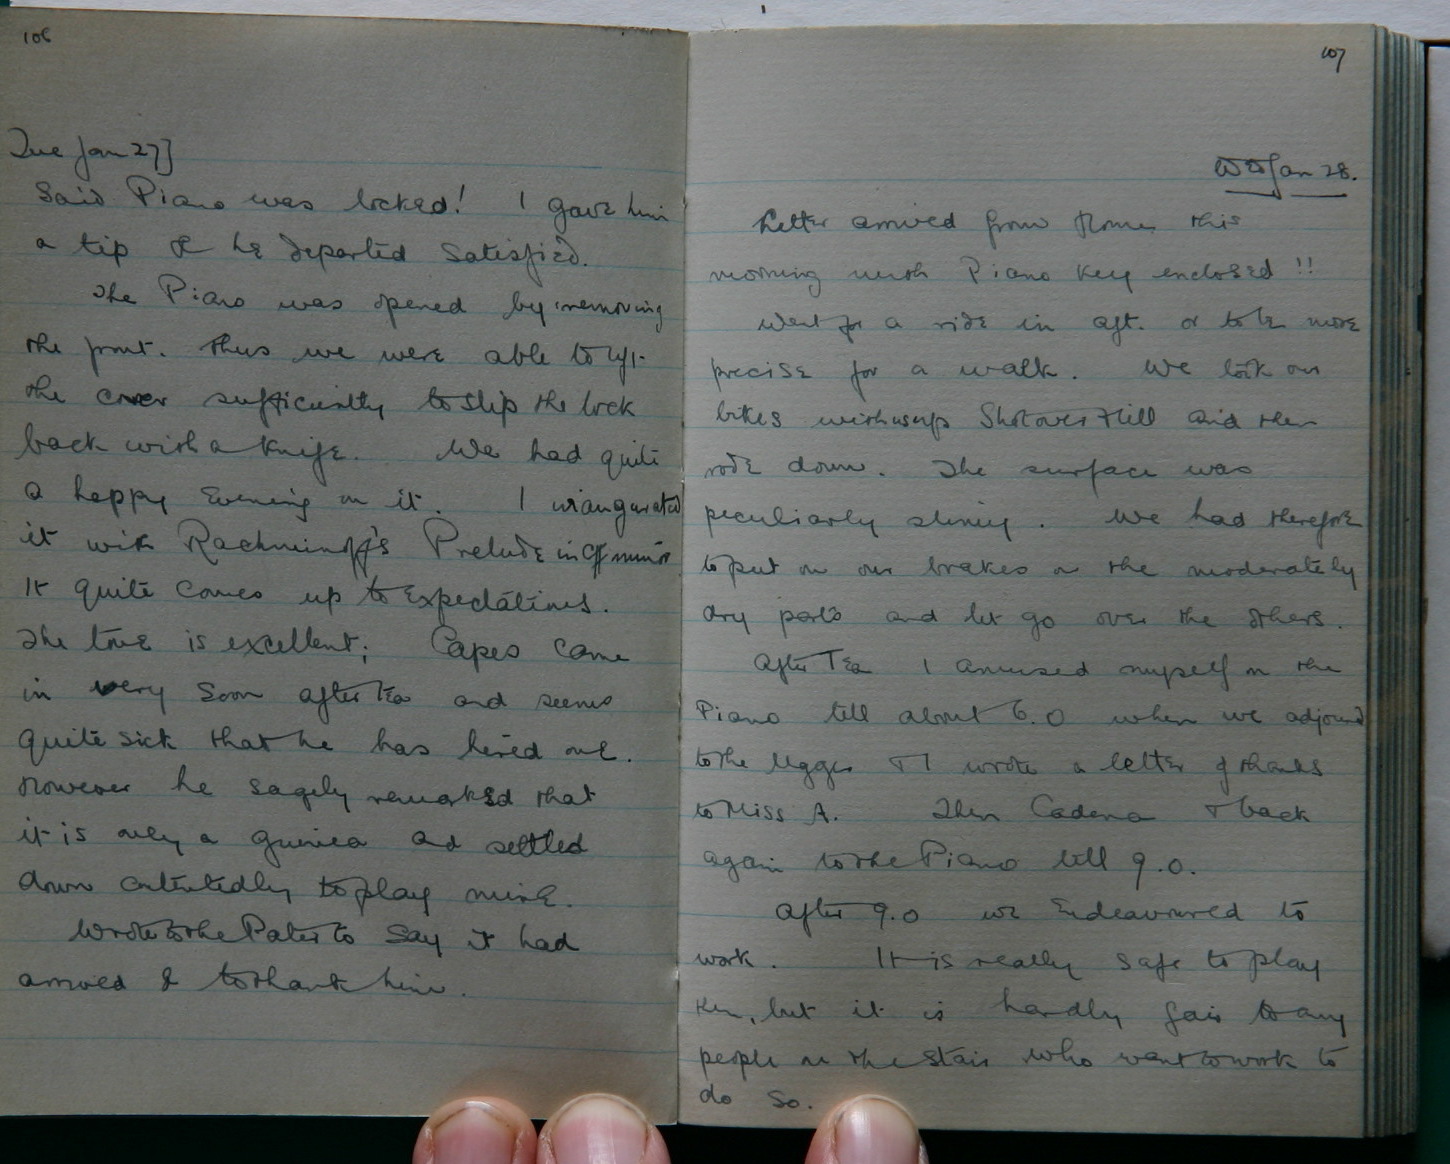 106
Tue Jan 27]
said Piano was locked! I gave him
a tip & he departed satisfied.
The Piano was opened by removing
the front. Thus we were able to lift
the cover sufficiently to slip the lock
back with a knife. We had quite
a happy Evening on it. I inaugurated
it with Rachmninoff's Prelude in C# minor
It quite comes up to Expectations.
The tone is excellent; Capes came
in very soon after Tea and seems
quite sick that he has hired one.
However he sagely remarked that
it is only a guinea and settled
down contentedly to play mine.
Wrote to the Pater to say it had
arrived & to thank him.
107
Wed Jan 28.
Letter arrived from Home this
morning with Piano key enclosed!!
Went for a ride in aft. or to be more
precise for a walk. We took our
bikes with us up Shotover Hill and then
rode down. The surface was
peculiarly slimy. We had therefore
to put on our brakes on the moderately
dry parts and let go over the others.
After Tea I amused myself on the
Piano till about 6.0 when we adjournd
to the Ugger & I wrote a letter of thanks
to Miss A. Then Cadena & back
again to the Piano till 9.0.
After 9.0 we Endeavoured to
work. It is really safe to play
then, but it is hardly fair to any
people on the Stair who want to work to
do so.